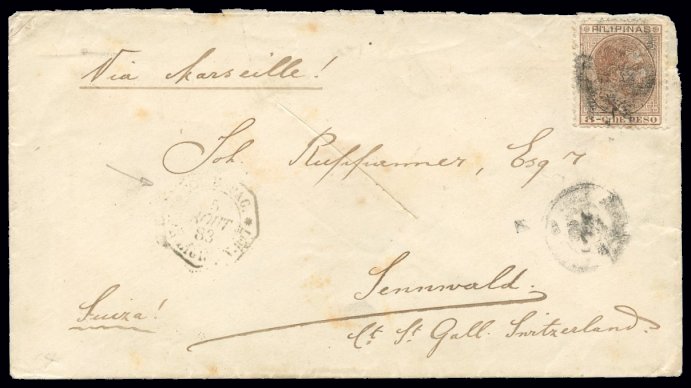 FILIPINAS
8 C. DE PESO
Via Marseille!
Joh. Ruppanner, Esqr
5
AOUT
83
Sennwald.
Suiza!
Ct. St. Gall. Switzerland.